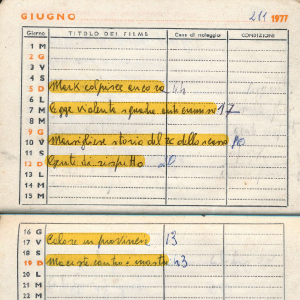 GIUGNO 211 1977
Giorno TITOLO DEI FILMS Casa di noleggio CONDIZIONI
1 M
2 G
3 V
4 S
5 D Mark colpisce ancora
6 L
7 M Legge violenta squadra anticrimine 17
8 M
9 G
10 V Marsigliese storia del re della scassa 80
11 S
12 D Gente di rispetto 20
13 L
14 M
15 M
16 G
17 V Calore in provincia 13
18 S
19 D Maciste contro i mostri 43
20 L
21 M
22 M